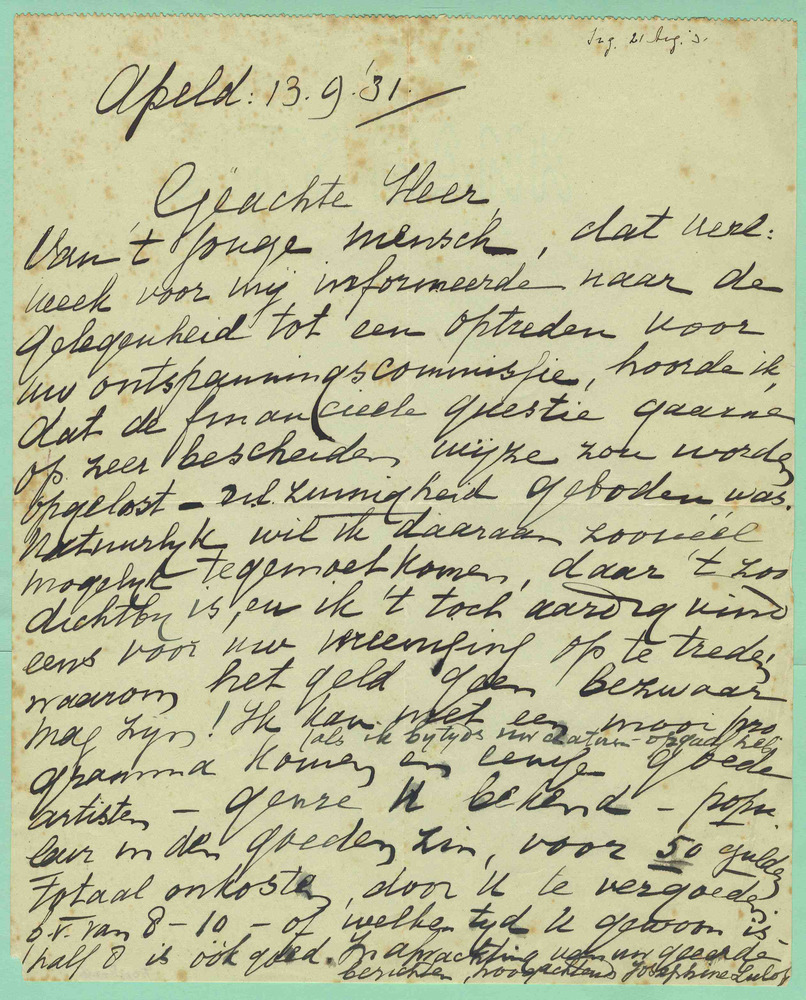 Apeld: 13.9.'31.
Geachte Heer,
Van 't jonge mensch, dat verl:
week voor mij informeerde naar de
gelegenheid tot een optreden voor
uw ontspanningscommissie, hoorde ik,
dat de financieele questie gaarne
op zeer bescheiden wijze zou worden
opgelost – zuinigheid geboden was.
Natuurlijk wil ik daaraan zooveel
mogelijk tegemoet komen, daar 't zoo
dichtbij is, en ik 't toch aardig vind
eens voor uw vereeniging op te treden,
waarom het geld geen bezwaar
mag zijn! Ik kan met een mooi pro
(als ik bytyds uw datum opgaaf heb
gramma komen en eenige goede
artisten – genre U bekend – popu
lair in den goeden zin, voor 50 gulden
totaal onkosten, door U te vergoeden
b.v. van 8–10 – of welke tijd U gewoon is –
half 8 is óók goed. In afwachting van uw geeerde
berichten, hoogachtend Josephine